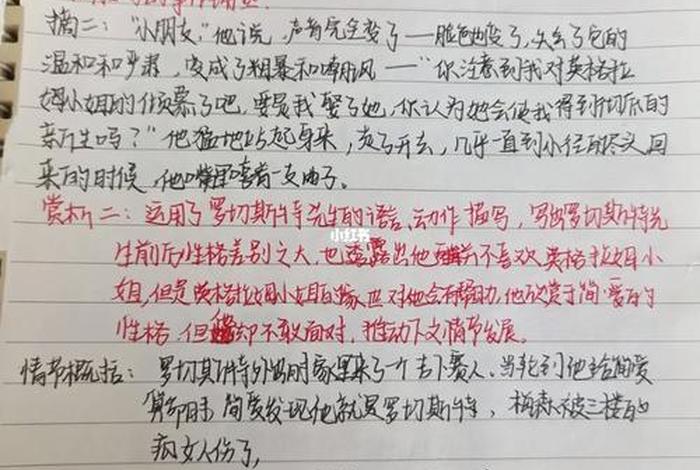 摘二:“小朋友,”他说,声音完全变了——脸色也变了,失去了它的
温和和严肃,变成了粗暴和嘲讽——“你注意到我对英格拉
姆小姐的倾慕了吧,要是我娶了她,你认为她会使我得到彻底的
新生吗?”他猛地站起身来,走了开去,几乎一直到小径的尽头,回
来的时候,他嘴里哼着一支曲子。
小红书
赏析二:运用了罗切斯特先生的语言、动作描写,写出罗切斯特先
生前后性格差别之大,也透露出他并不喜欢英格拉姆小
姐,但是英格拉姆小姐的家世对他会有帮助,他欣赏于简·爱的
性格,但却不敢面对,推动下文情节发展。
情节概括:罗切斯特外出时家里来了一个吉卜赛人。当轮到他给简爱
算命时,简爱发现他就是罗切斯特,梅森被三楼的
疯女人伤了,